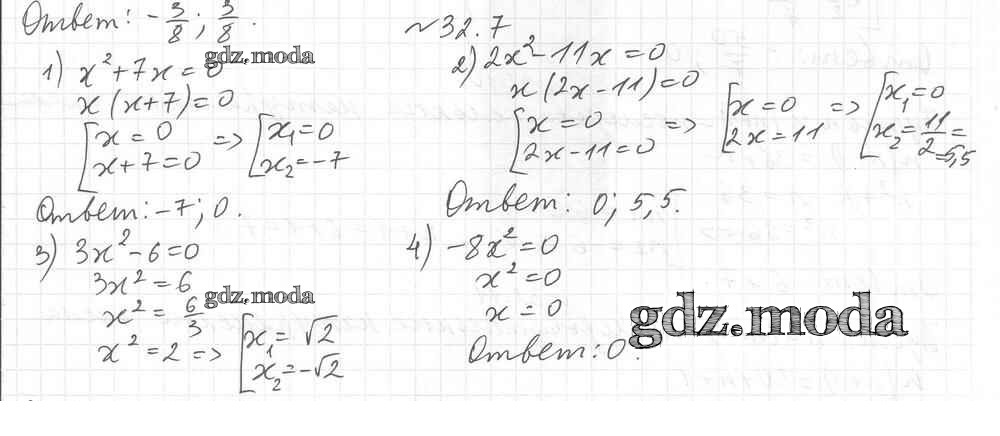 Ответ: -3/8; 3/8.
~32.7
1) x²+7x=0
x(x+7)=0
[x=0 x+7=0 => [x₁=0 x₂=-7
Ответ: -7; 0.
2) 2x²-11x=0
x(2x-11)=0
[x=0 2x-11=0 => [x=0 2x=11 => [x₁=0 x₂=11/2=5,5
Ответ: 0; 5,5.
3) 3x²-6=0
3x²=6
x²=6/3
x²=2 => [x₁=√2 x₂=-√2
4) -8x²=0
x²=0
x=0
Ответ: 0.
gdz.moda
gdz.moda
gdz.moda